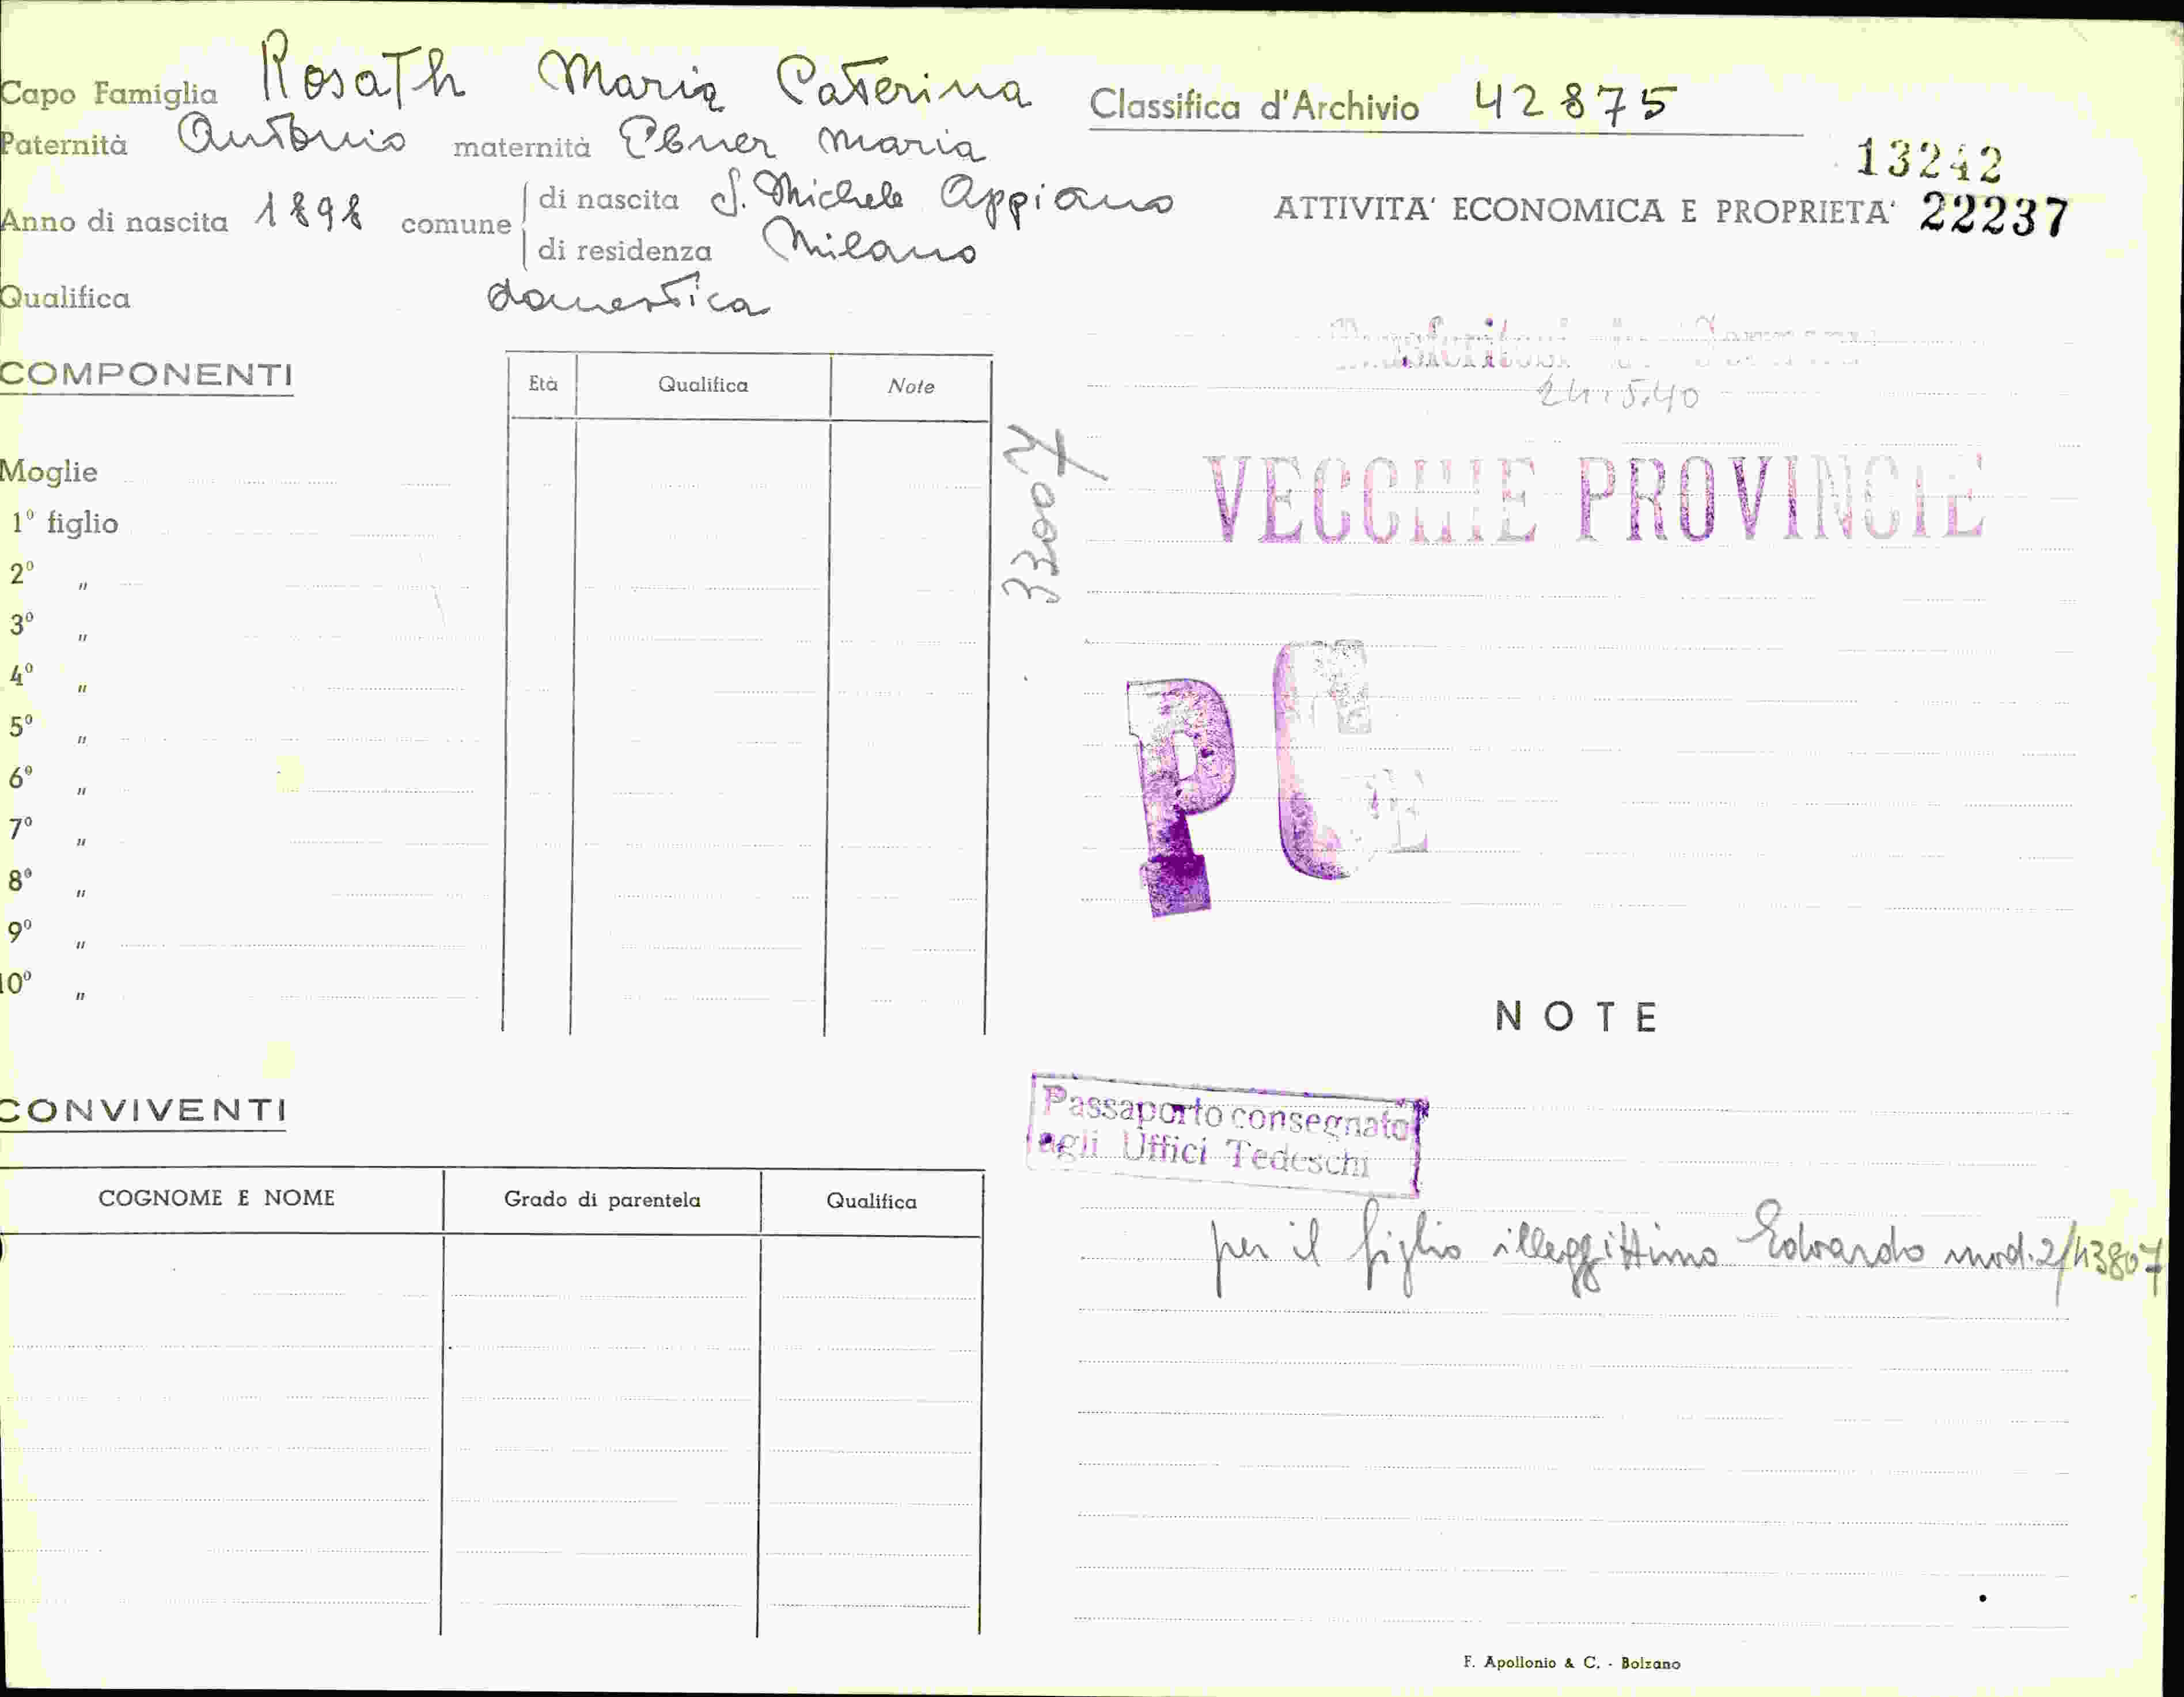 Capo Famiglia Rosath Maria Caterina
Paternità Antonio maternità Ebner Maria
Anno di nascita 1898 comune di nascita S. Michele Appiano
di residenza Milano
Qualifica domestica
Classifica d'Archivio 42875
13242
ATTIVITA' ECONOMICA E PROPRIETA' 22237
COMPONENTI
Età Qualifica Note
Moglie
1º figlio
2º "
3º "
4º "
5º "
6º "
7º "
8º "
9º "
10º "
33007
24.5.40
VECCHIE PROVINCIE
PC
NOTE
Passaporto consegnato
agli Uffici Tedeschi
per il figlio illeggittimo Edoardo mod. 2/43807
CONVIVENTI
COGNOME E NOME Grado di parentela Qualifica
F. Apollonio & C. - Bolzano